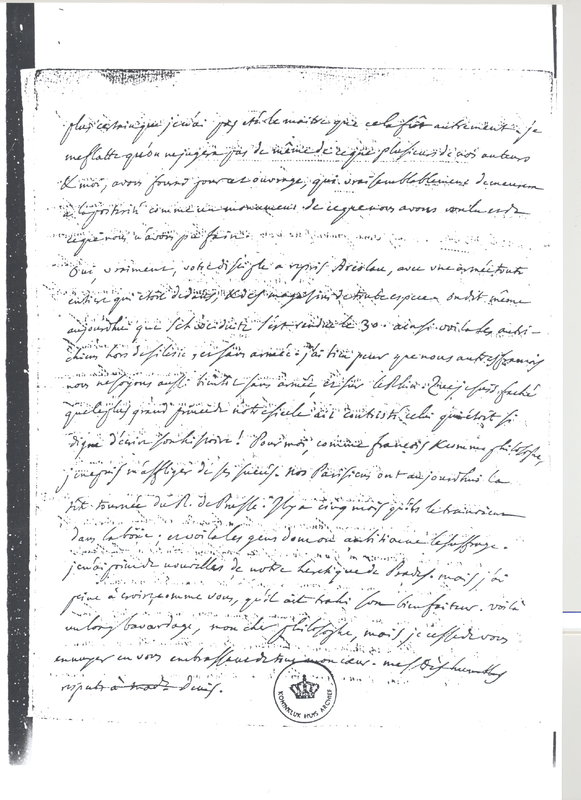 plus certain que je n'ai pas été le maitre que cela fût autrement. je
me flatte qu'on ne jugera pas de même de ce que plusieurs de nos auteurs
& moi, avons fourni pour cet ouvrage, qui vraisemblablement demeurera
à la postérité comme un monument de ce que nous avons voulu et de
ce que nous n'avons pu faire.
Oui, vraiment, votre disciple a repris Breslau, avec une armée toute
entiere qui etoit dedans, & des magasins de toute espece. on dit même
aujourdhui que Schweidnitz s'est rendu le 30. ainsi voila les autri-
chiens hors de Silesie, et sans armée. j'ai bien peur que nous autres françois
nous ne soyons aussi bientôt sans armée, et sur le Rhin. Que je suis faché
que le plus grand prince de notre siecle ait contristé celui qui étoit si
digne d'écrire son histoire! Pour moi, comme françois & comme philosophe,
je ne puis m'affliger de ses succès. nos Parisiens ont aujourdhui la
tête tournée du R. de Prusse. Il y a cinq mois qu'ils le trainoient
dans la boue; et voila les gens dont on ambitionne le suffrage.
je n'ai point de nouvelles de notre heretique de Prades. mais j'ai
peine à croire, comme vous, qu'il ait trahi son bienfaiteur. voilà
un long bavardage, mon cher philosophe, mais je cesse de vous
ennuyer en vous embrassant de tout mon cœur. mes
respects à made Denis.
KONINKLIJK HUIS ARCHIEF